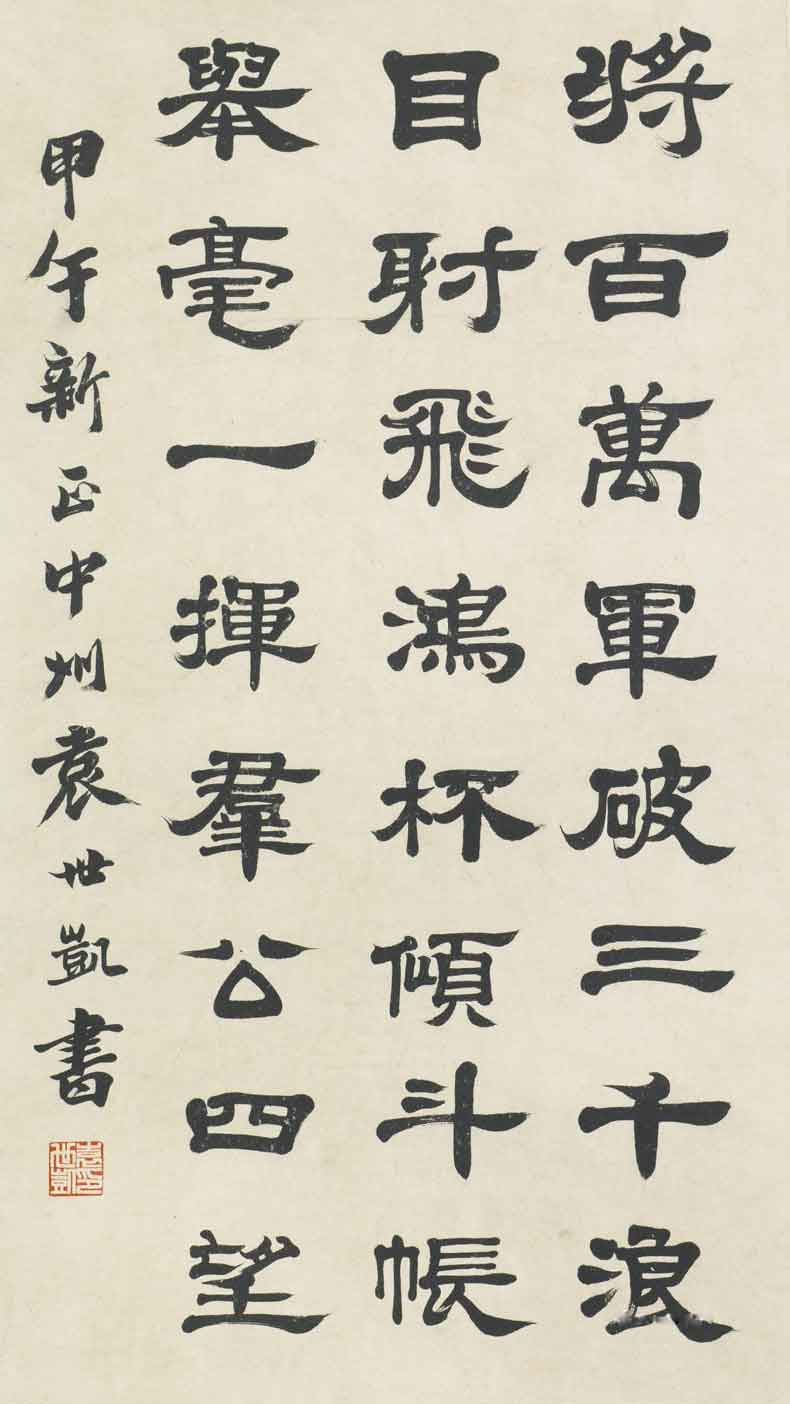 将百萬軍破三千浪
目射飛鴻杯傾斗帳
舉毫一揮羣公四望
甲午新正中州袁世凱書
袁世凱印